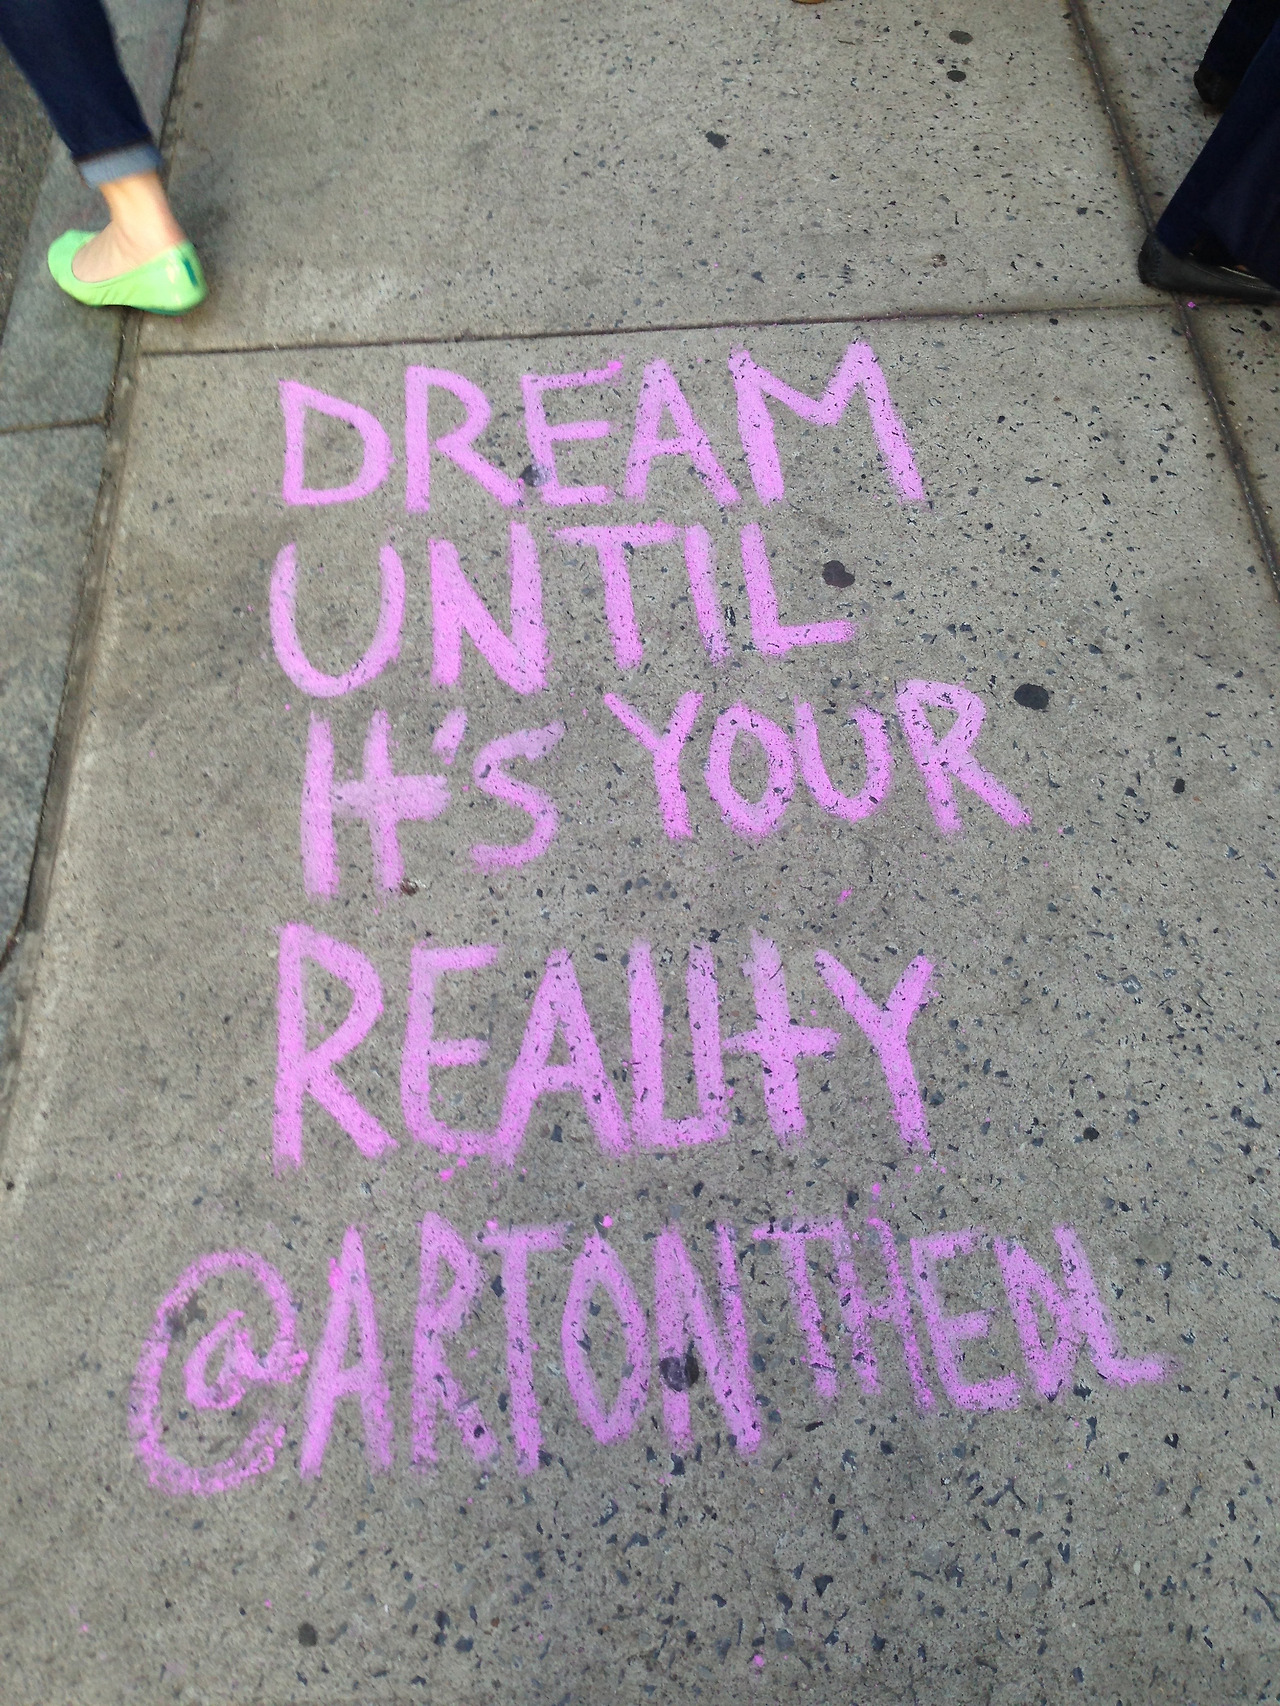 DREAM
UNTIL
It'S YOUR
REALItY
@ARTONTHEDL